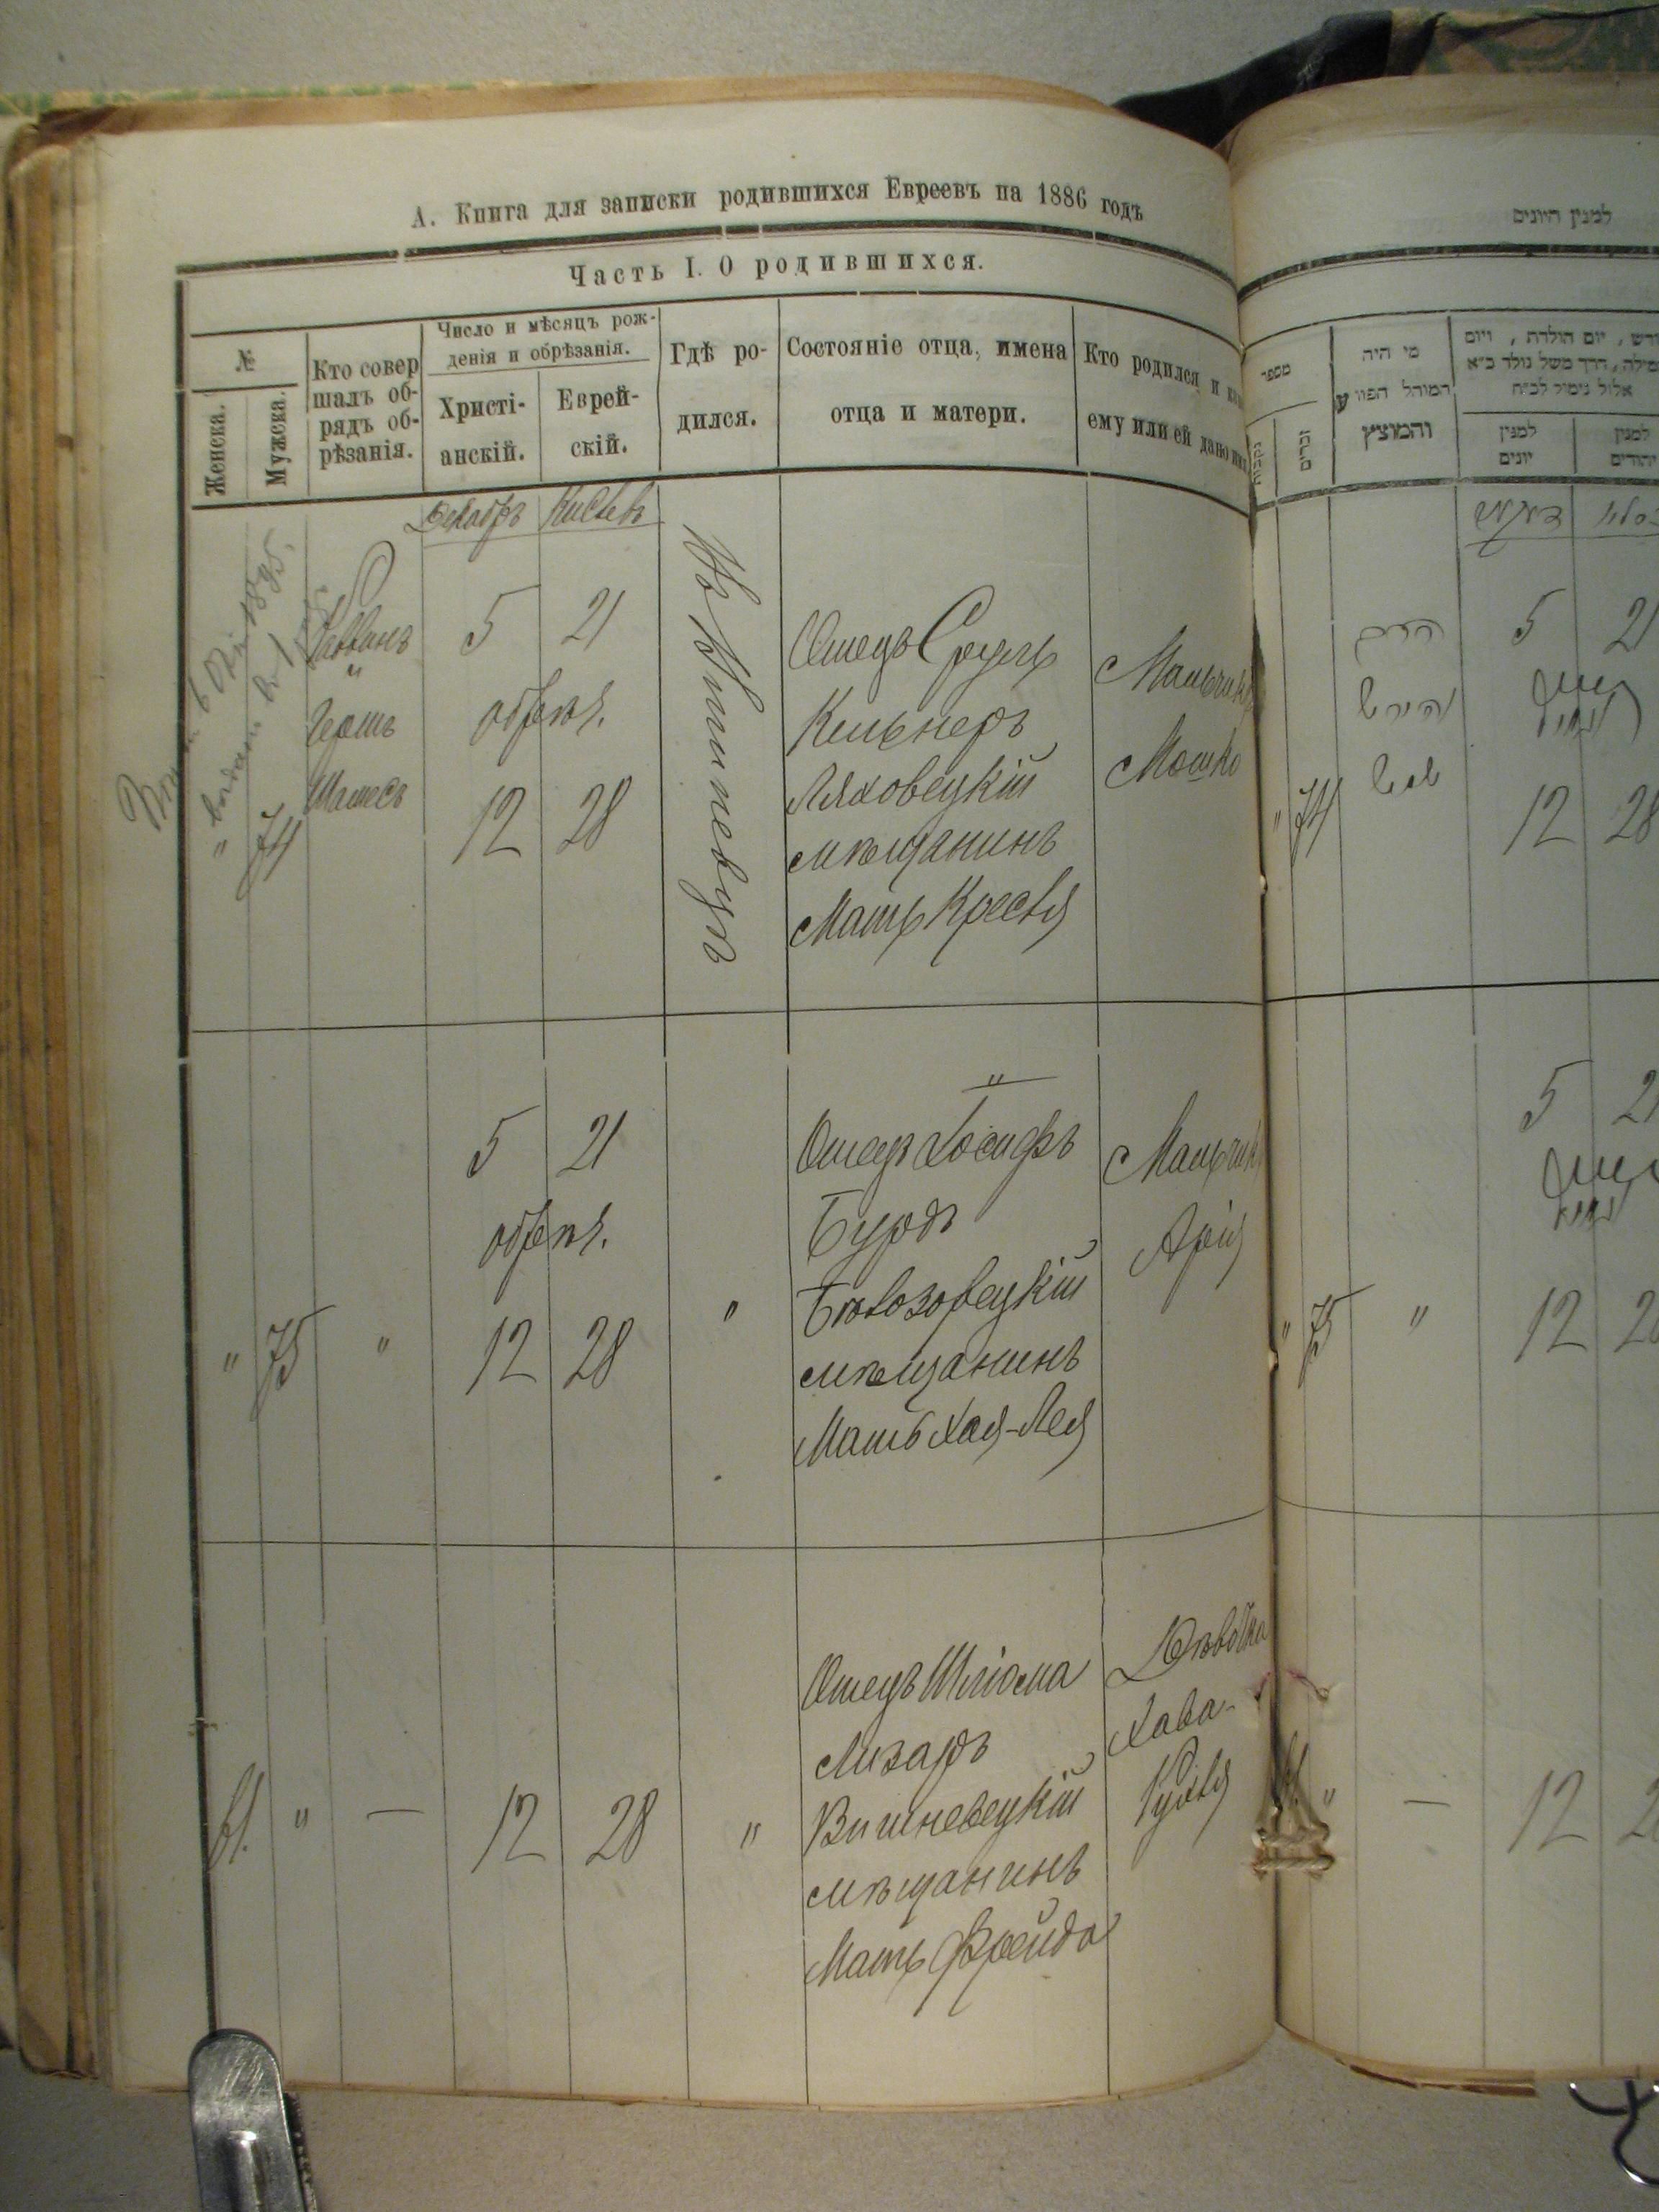 А. Книга для записки родившихся Евреевъ на 1886 годъ
Часть I. О родившихся.
№
Женска.
Мужска.
Кто совер
шалъ об-
рядъ об-
рѣзанія.
Число и мѣсяцъ рож-
денія и обрѣзанія.
Христі-
анскій.
Еврей-
скій.
Гдѣ ро-
дился.
Состояніе отца, имена
отца и матери.
Кто родился и
ему или ей дано
Декабрь Кислевъ
74
Раввинъ
"
Гершъ
Шамесъ
5 21
обрѣз.
12 28
Въ Вишневцѣ
Отецъ Сруль
Кельнеръ
Ляховецкій
мѣщанинъ
Мать Крейня
Мальчикъ
Мошко
" 75 "
5 21
обрѣз.
12 28
"
"
Отецъ Іосифъ
Бурдъ
Бѣлозовецкій
мѣщанинъ
Мать Хая-Лея
Мальчикъ
Арія
61. " —
12 28
"
Отецъ Шліома
Лизаръ
Вишневецкій
мѣщанинъ
Мать Фрейда
Дѣвочка
Хава-
למנין היונים
מספר
נקבות
זכרים
מי היה
המוהל הפורע
והמוצץ
יום הולדת, ויום
מילה, דרך משל נולד כ״א
אלול נימול לכ״ח
למנין
יונים
למנין
יהודים
" 74
הרב
והירש
שמש
5 21
12 28
" 75 "
5
12
" —
12